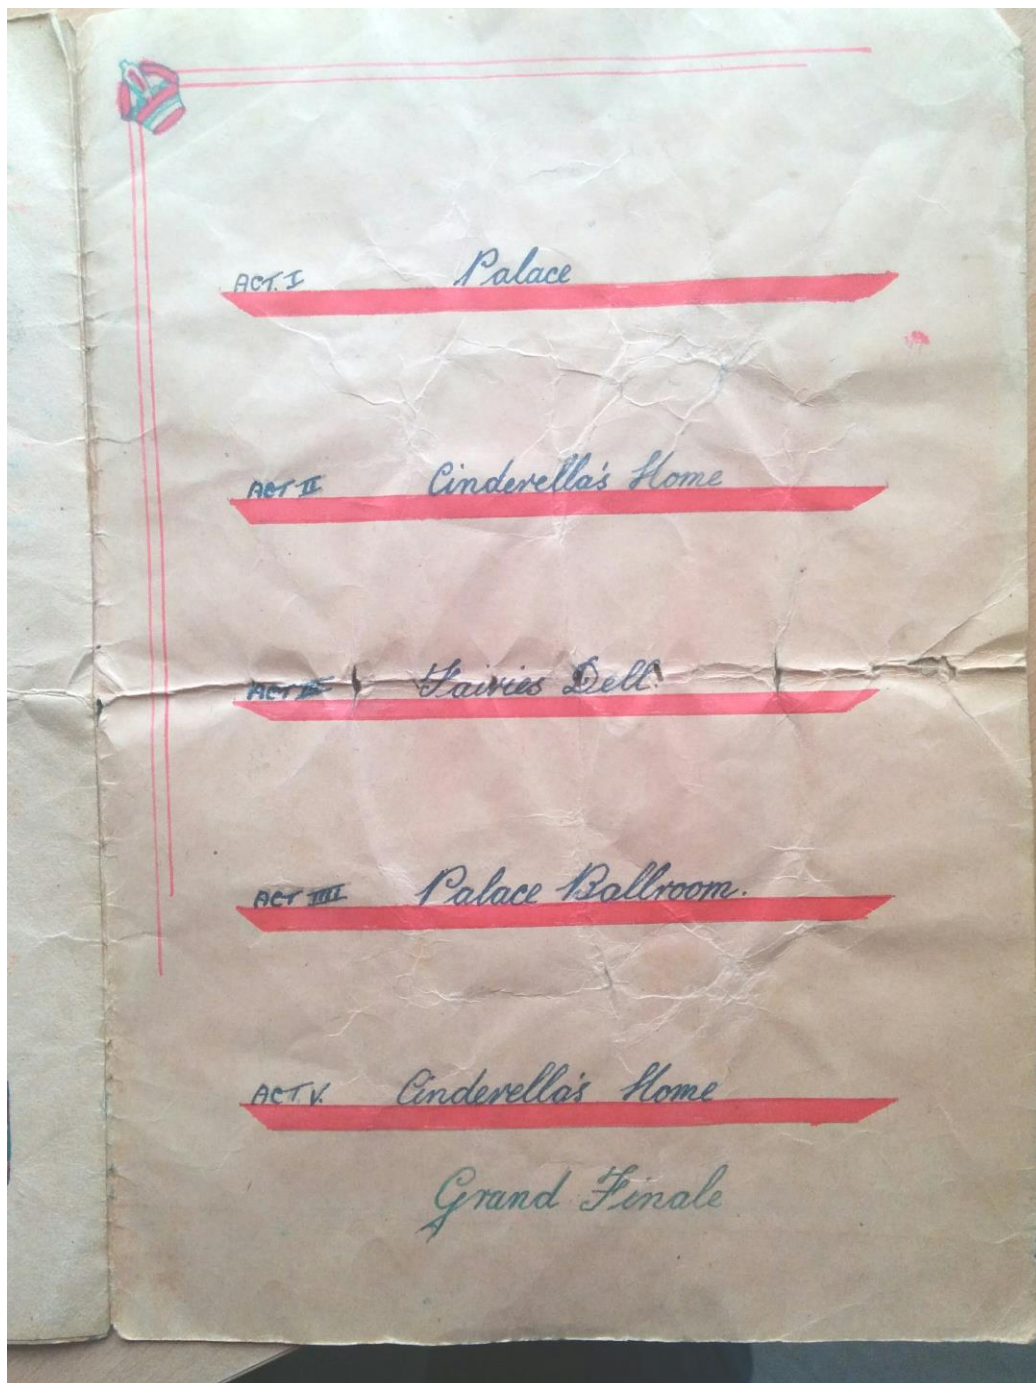 ACT. I Palace
ACT II Cinderella's Home
ACT III Fairies Dell.
ACT IIII Palace Ballroom.
ACT V. Cinderella's Home
Grand Finale